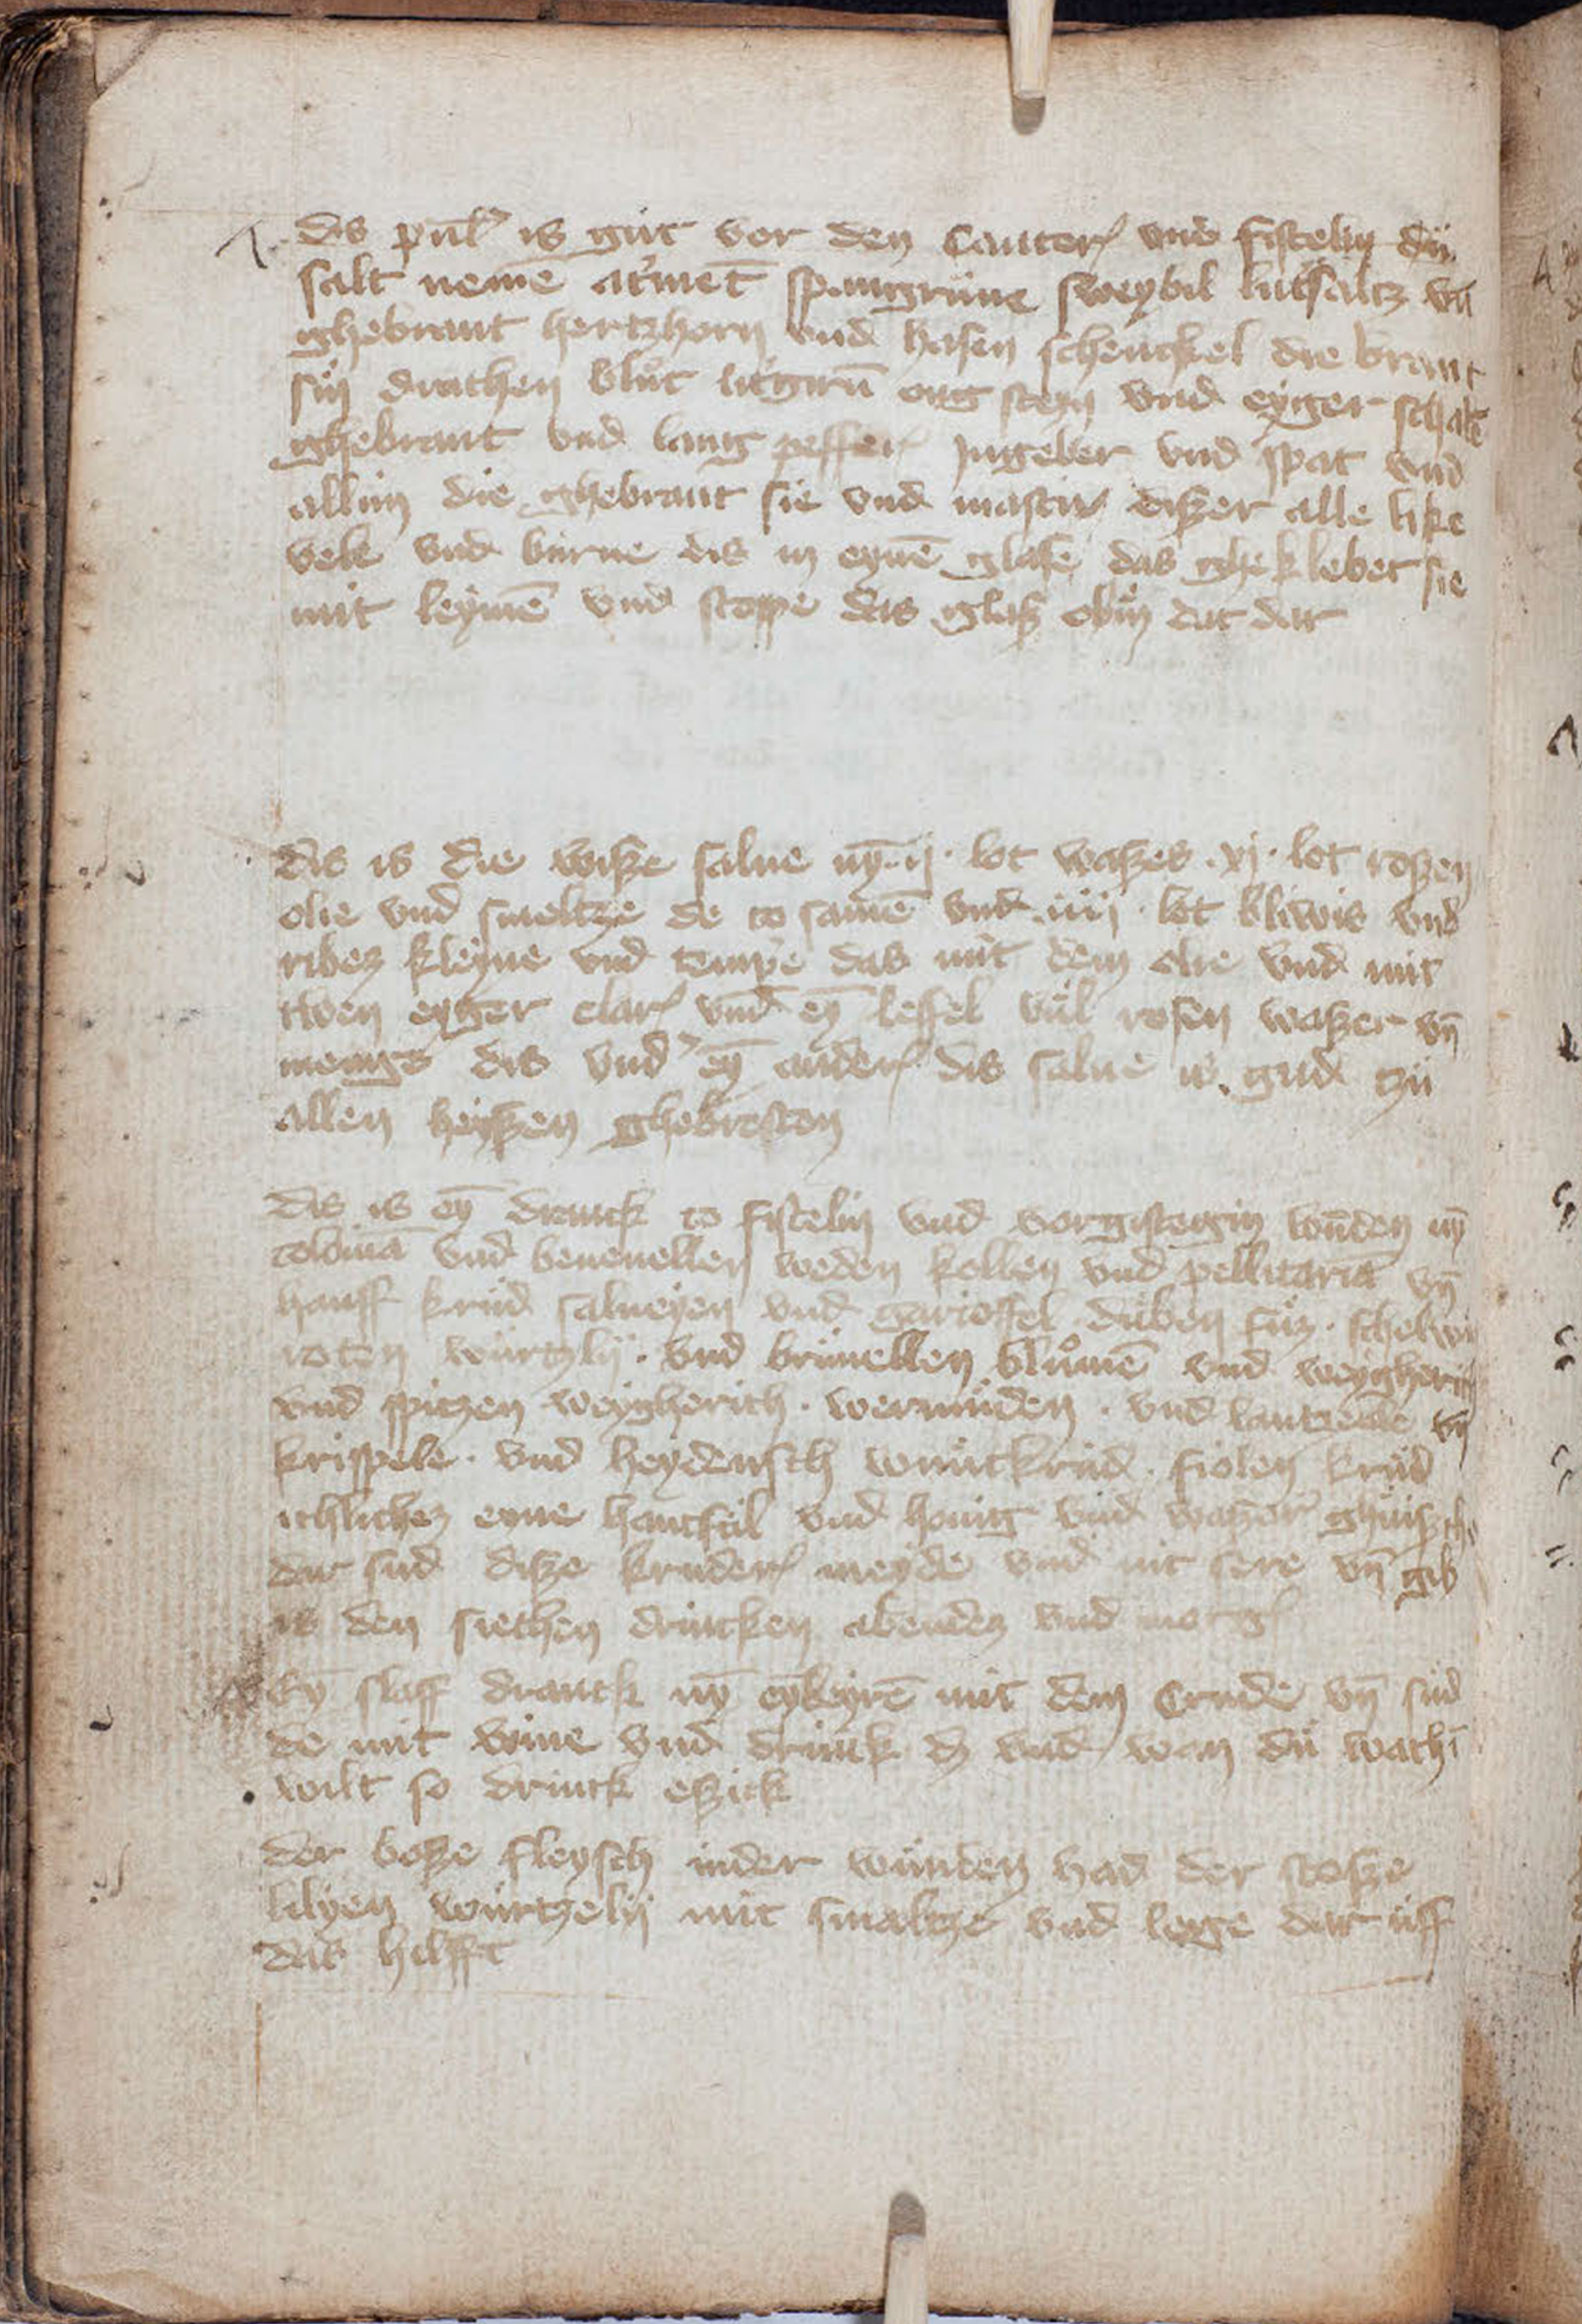 dis pul͛ is gut vor den Canceꝛ vnd fistelin dü
salt neme͞ at͛me͞t spangrüne sweybil lutsaltz vn͞
ghebrant hertzhorn vnd hasen schenckel die brant
sin drachen blůt litgiru͞ oug steyn vnd eyger schale
ghebrant vnd lang peffer Jngeber vnd spat vnd
allun die ghebrant sie vnd mastix diszer alle like
vele vnd burne dis in eyne͞ glase das gheklebet sie
mit leyme͞ vnd stoppe das glasz obin dat dar
dis is die wisze salue ny͞ ij · lot waszes · xj · lot roszen
olie vnd smeltze de to same͞ vnd iiij · lot bliwis vnd
ribez kleyne vnd temp͛e das mit dem olie vnd mit
twen eyger clar vnd ey͞ leffel vůl rosen waszer vn͞
menge dis vnd͛ ey͞ ander dis salue is gud tzü
allen heyszen ghebresten
dis is ey͞ dranck to fistelin vnd vorgistegin wu͞den ny͞
vnd beneuellen weden kollen vnd pellitaria͞ vn͞
hanff krud salueyen vnd garioffel düben füz · schelwu
roten würtzlij · vnd brünellen blůme͞ vnd weygherich
vnd spitzen weygherich · wermüden · vnd lantzelle vn͞
krispele · vnd heydensch wuntkrud · fiolen krüd
ichlichez eyne hantfül vnd honig vnd waszer
dar sud disze kruder meyde vnd nit sere vn͞ gib
is den siechen drincken abendez vnd morg
Ey͞ slaff dranck ny͞ mit dem Crude vn͞ sud
de mit wine vnd drinck vnd wan dü wach͞
wilt so drinck eszick
der bosze fleysch inder wunden had der stosze
lilyen wurtzelij mit smaltze vnd lege dar uff
das hilfft